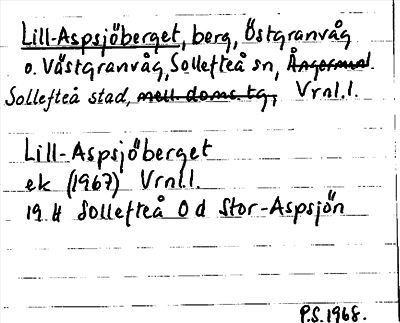 Lill-Aspsjöberget, berg, Östgranvåg
o. Västgranvåg, Sollefteå sn, Ångermanl.
Sollefteå stad, mell. doms. tg, Vrnl.l.
Lill-Aspsjöberget
ek (1967) Vrnl.l.
19 H Sollefteå O d Stor-Aspsjön
P.S. 1968.